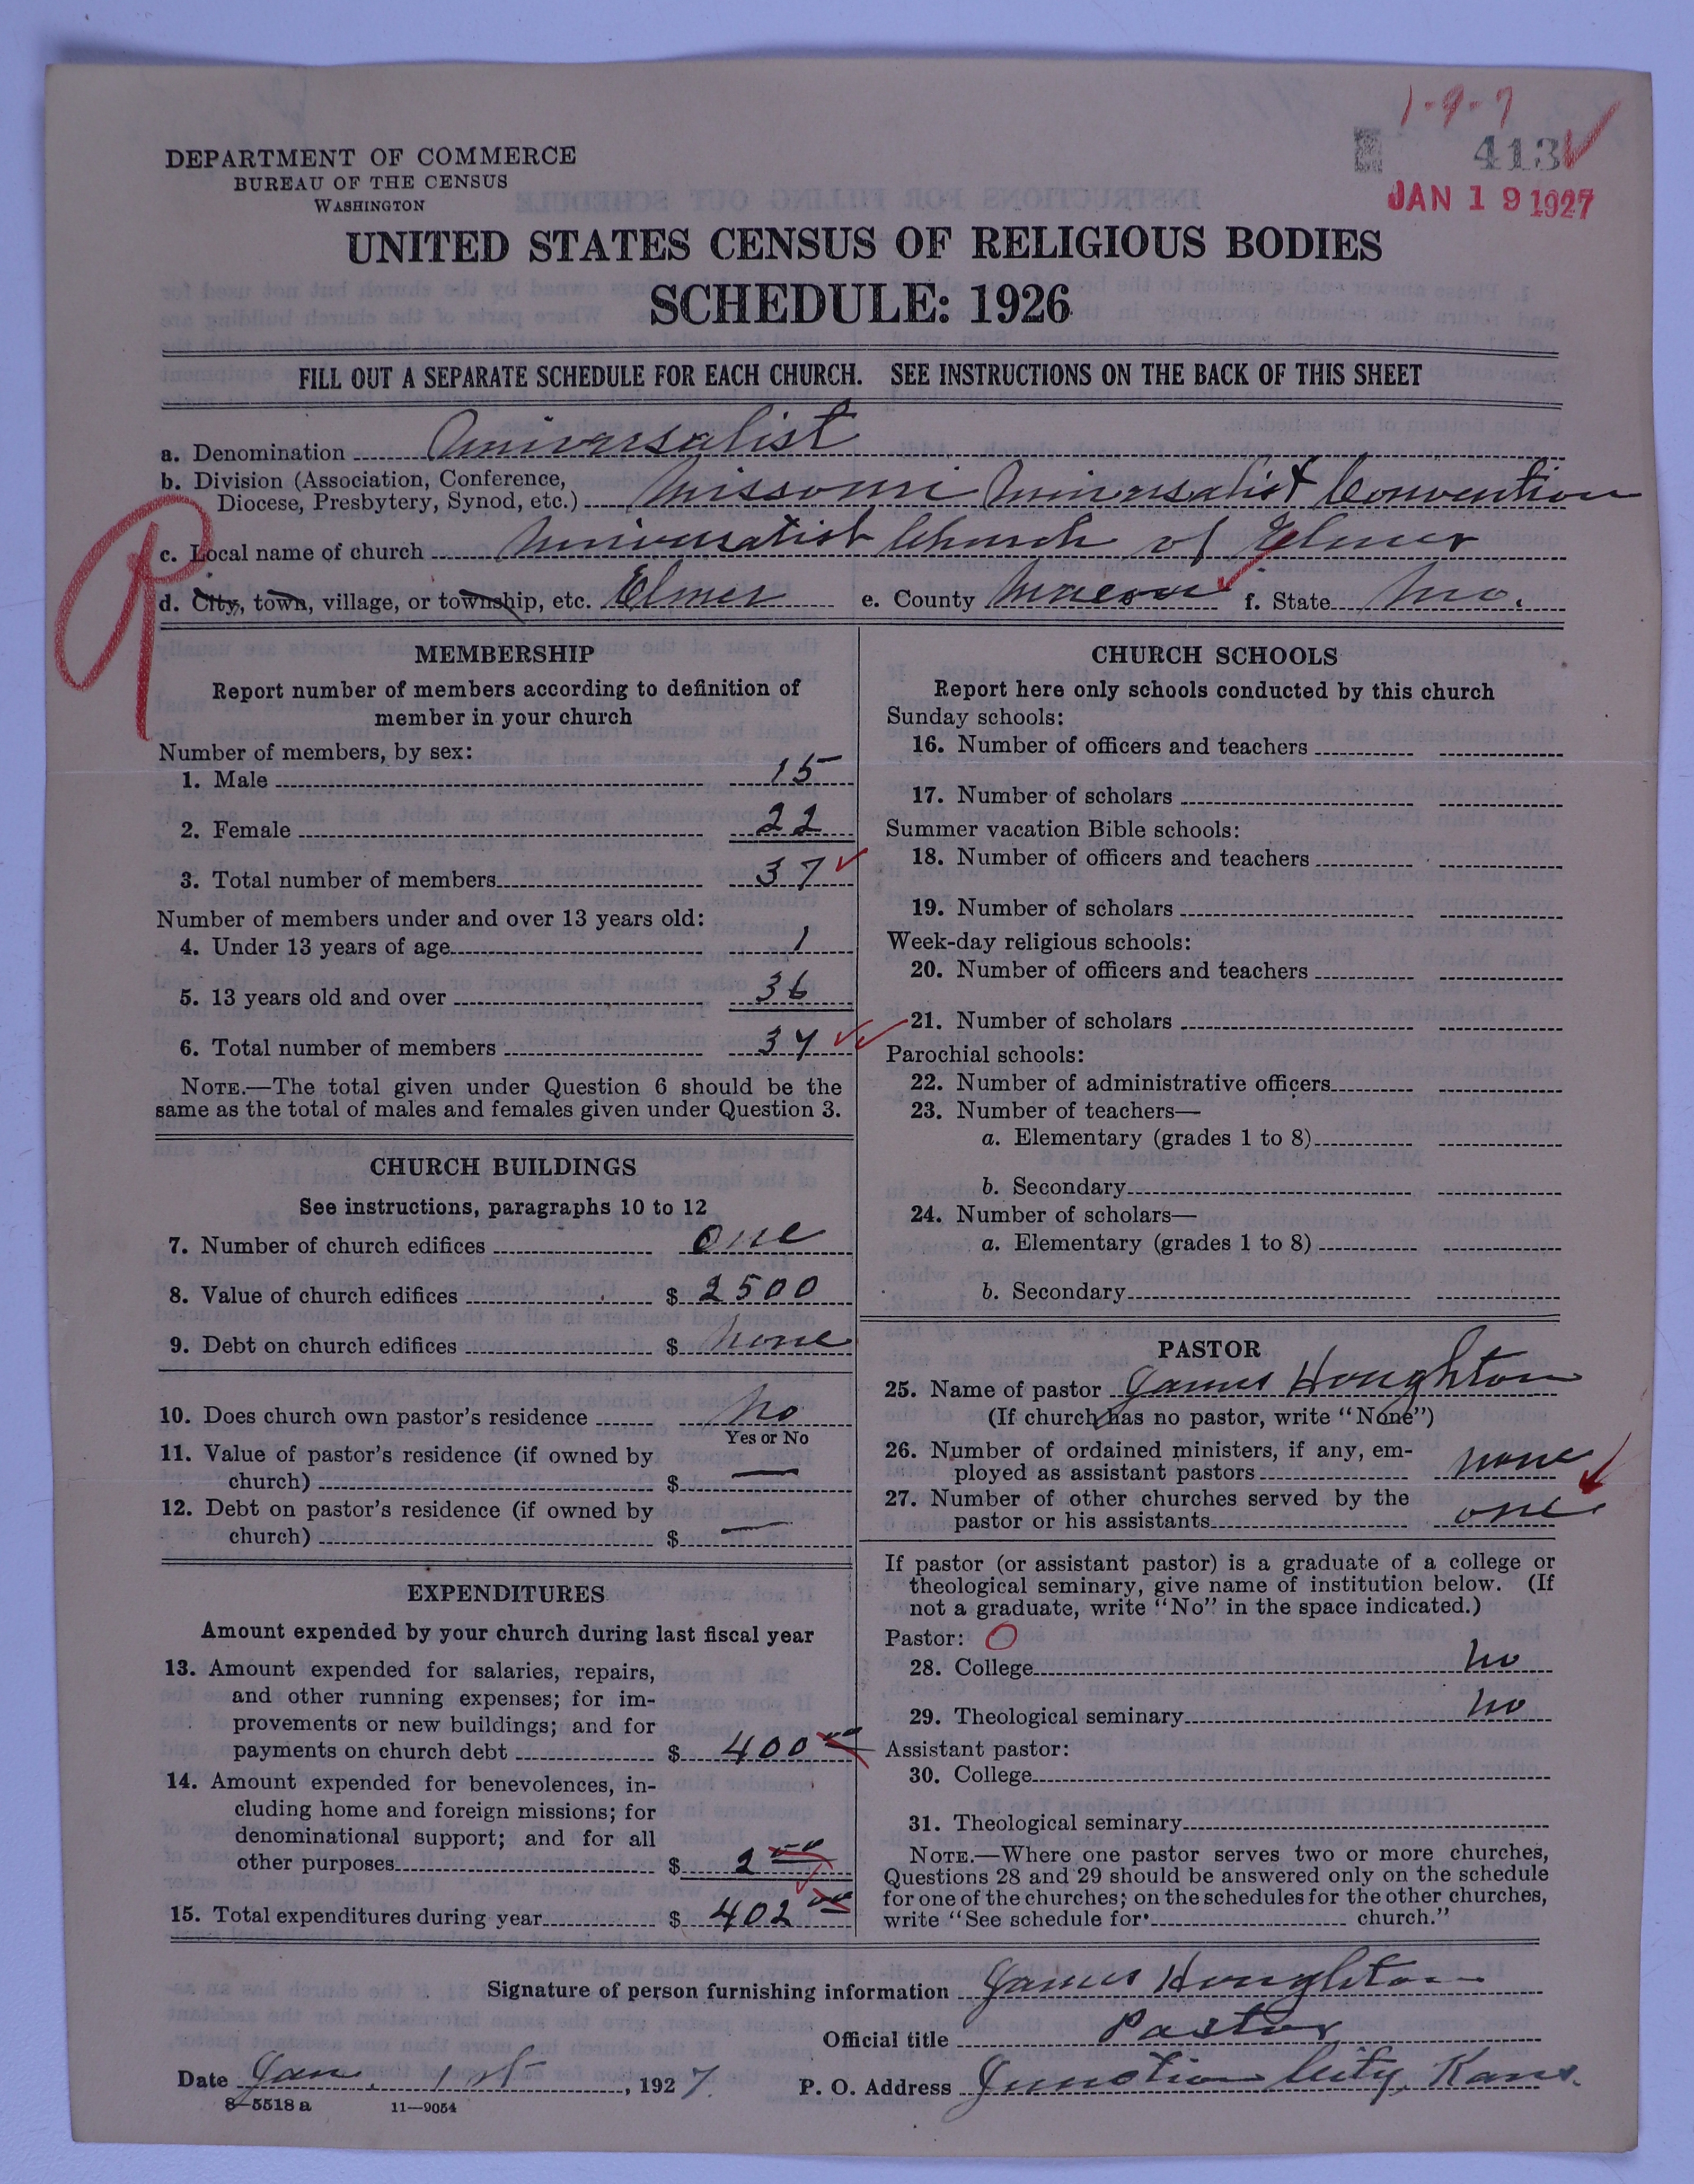 1-9-7
413
JAN 19 1927
DEPARTMENT OF COMMERCE
BUREAU OF THE CENSUS
WASHINGTON
UNITED STATES CENSUS OF RELIGIOUS BODIES
SCHEDULE: 1926
FILL OUT A SEPARATE SCHEDULE FOR EACH CHURCH. SEE INSTRUCTIONS ON THE BACK OF THIS SHEET
a. Denomination Universalist
b. Division (Association, Conference,
Diocese, Presbytery, Synod, etc.) Missouri Universalist Convention
c. Local name of church Universalist Church of Elmer
d. City, town, village, or township, etc. Elmer e. County Macon f. State Mo.
MEMBERSHIP
Report number of members according to definition of
member in your church
Number of members, by sex:
1. Male 15
2. Female 22
3. Total number of members 37
Number of members under and over 13 years old:
4. Under 13 years of age 1
5. 13 years old and over 36
6. Total number of members 37
NOTE.—The total given under Question 6 should be the
same as the total of males and females given under Question 3.
CHURCH BUILDINGS
See instructions, paragraphs 10 to 12
7. Number of church edifices one
8. Value of church edifices $ 2500
9. Debt on church edifices $ none
10. Does church own pastor's residence No
Yes or No
11. Value of pastor's residence (if owned by
church) $ —
12. Debt on pastor's residence (if owned by
church) $ —
EXPENDITURES
Amount expended by your church during last fiscal year
13. Amount expended for salaries, repairs,
and other running expenses; for im-
provements or new buildings; and for
payments on church debt $ 400 00
14. Amount expended for benevolences, in-
cluding home and foreign missions; for
denominational support; and for all
other purposes $ 2 00
15. Total expenditures during year $ 402 00
CHURCH SCHOOLS
Report here only schools conducted by this church
Sunday schools:
16. Number of officers and teachers
17. Number of scholars
Summer vacation Bible schools:
18. Number of officers and teachers
19. Number of scholars
Week-day religious schools:
20. Number of officers and teachers
21. Number of scholars
Parochial schools:
22. Number of administrative officers
23. Number of teachers—
a. Elementary (grades 1 to 8)
b. Secondary
24. Number of scholars—
a. Elementary (grades 1 to 8)
b. Secondary
PASTOR
25. Name of pastor James Houghton
(If church has no pastor, write "None")
26. Number of ordained ministers, if any, em-
ployed as assistant pastors none
27. Number of other churches served by the
pastor or his assistants one
If pastor (or assistant pastor) is a graduate of a college or
theological seminary, give name of institution below. (If
not a graduate, write "No" in the space indicated.)
Pastor: O
28. College no
29. Theological seminary no
Assistant pastor:
30. College
31. Theological seminary
NOTE.—Where one pastor serves two or more churches,
Questions 28 and 29 should be answered only on the schedule
for one of the churches; on the schedules for the other churches,
write "See schedule for church."
Signature of person furnishing information James Houghton
Official title Pastor
Date Jan. 1st, 1927. P. O. Address Junction City, Kans.
8-5518 a 11—9054